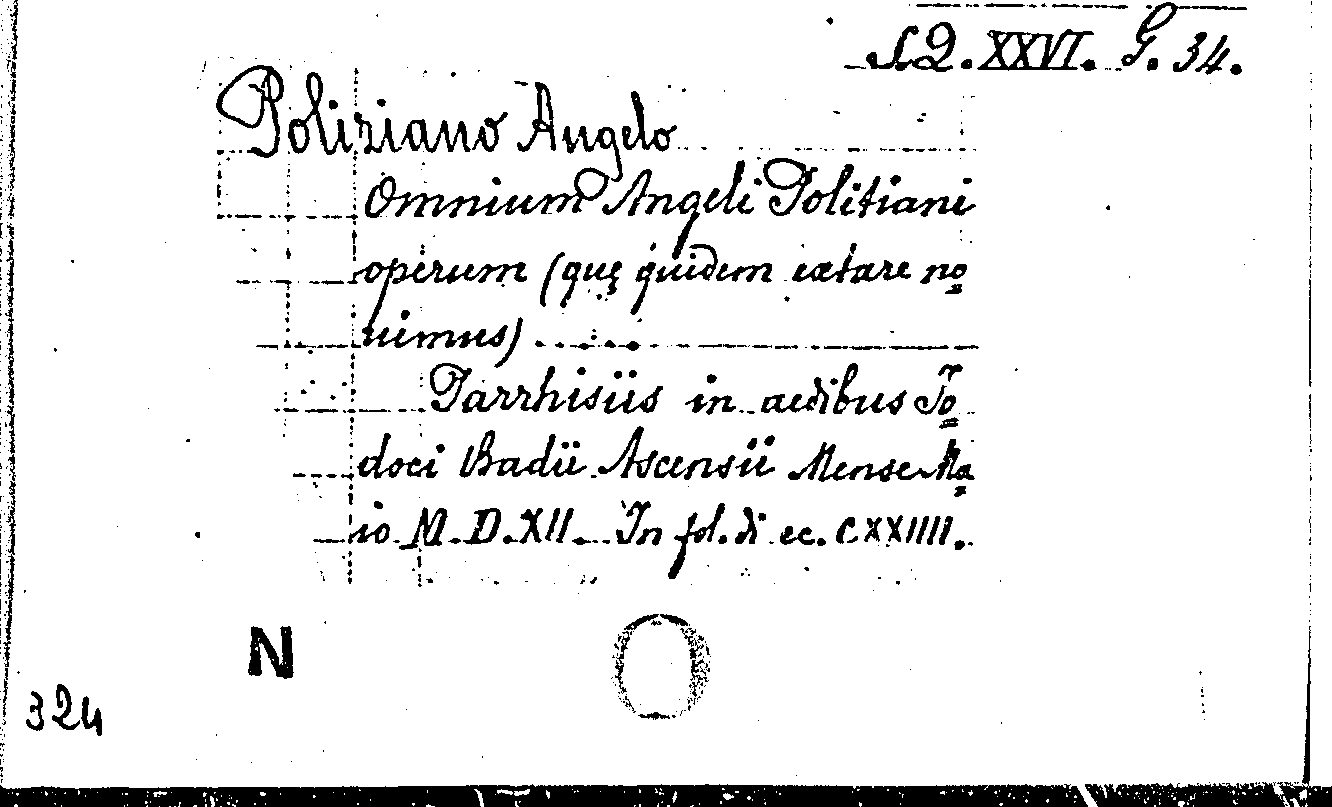 S.Q. XXVI. G. 34.
Poliziano Angelo
Omnium Angeli Politiani
operum (quę quidem extare no
uimus) ......
Parrhisiis in aedibus Io
doci Badii Ascensii Mense Ma
io M.D.XII. In fol. di cc. CXXIIII.
N
324